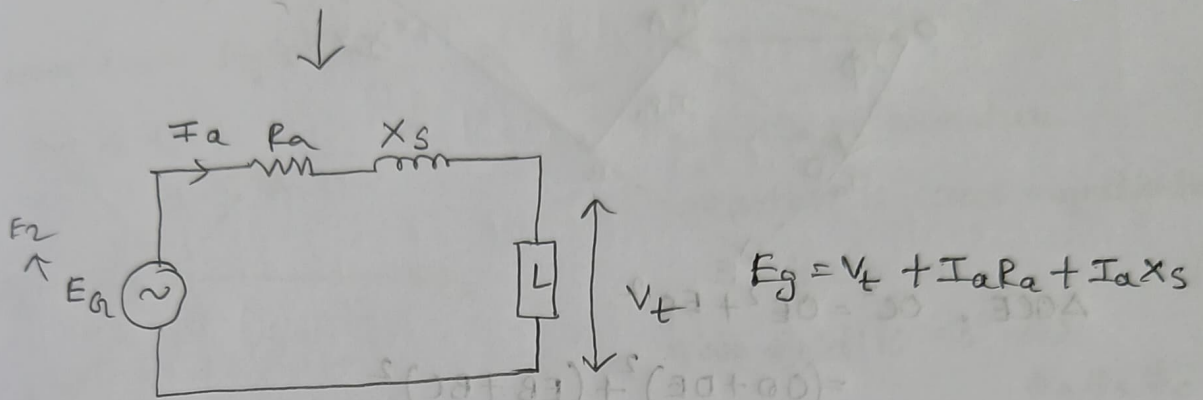 Ia Ra Xs
E2
EG
L
Vt
Eg = Vt + IaRa + IaXs